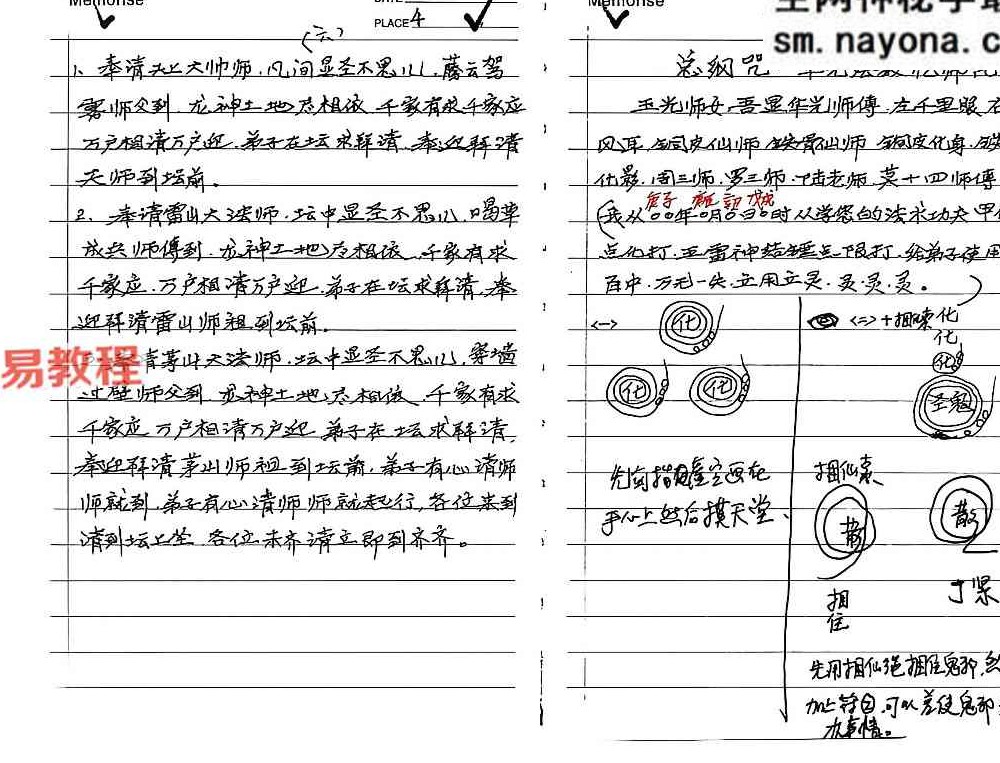 Memorise
PLACE 4
(六)
1、奉请头上大帅师,凡间显圣不思儿,藤云驾
雾师父到,龙神土地尽相依,千家有求千家应
万户相请万户迎,弟子在坛求拜请,奉迎拜请
天师到坛前。
2、奉请雷山大法师,坛中显圣不思儿,喝茅
成兵师傅到,龙神土地尽相依,千家有求
千家应,万户相请万户迎,弟子在坛求拜请,奉
迎拜请雷山师祖到坛前。
请茅山大法师,坛中显圣不思儿,穿墙
过壁师父到,龙神土地尽相依,千家有求
千家应,万户相请万户迎,弟子在坛求拜请,
奉迎拜请茅山师祖到坛前,弟子有心请师
师就到,弟子有心请师师就起行,各位来到
请到坛上坐,各位未齐请立即到齐齐。
易教程
Memorise
sm.nayona.c
总纲咒
玉光师女,吾显华光师傅,左千里眼,右
风耳,铜皮仙师,铁骨仙师,铜皮化身,铁
化影,周三师,罗三师,陆老师,莫十四师傅
(我从00年0月0日0时从学您的法求功夫
点化打,五雷神 点限打,给弟子使用
百中,万无一失,立用立灵,灵,灵,灵。
<一>
化
化
化
先向 空画在
手心上然后摸天堂、
<二>
化
化
化
圣鬼
捆仙索
散
散
捆
住
丁紧
先用捆仙绳捆住鬼邪,然
加上符 可以差使鬼邪
办事情。